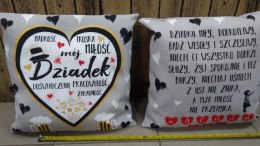 MĄDROŚĆ TROSKA
MIŁOŚĆ
mój
Dziadek
DOŚWIADCZENIE PRACOWITOŚĆ
ZARADNOŚĆ
DZIADKU MÓJ, DOBROTLIWY,
BĄDŹ WESOŁY I SZCZĘŚLIWY,
NIECH CI WSZYSTKO DOBRZE
SŁUŻY, ŻYJ SPOKOJNIE I BEZ
BURZY, NIECHAJ UŚMIECH
Z UST NIE ZNIKA,
A TWA MIŁOŚĆ
NIE PRZEMIJA.